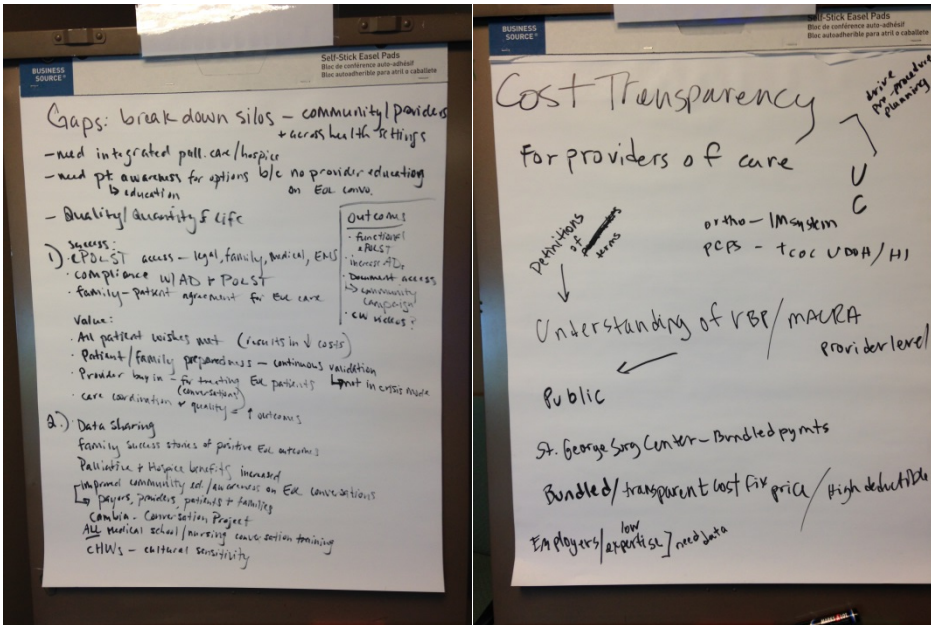 BUSINESS
SOURCE
Self-Stick Easel Pads
Bloc de conférence auto-adhésif
Bloc autoadherible para atril o caballete
Gaps: break down silos – community/providers
+ across health settings
– need integrated pall. care/hospice
– need pt. awareness for options b/c no provider education
↳ education
on EOL convo.
– Quality/Quantity of Life
1.) Success:
· ePOLST access – legal, family, medical, EMS
· compliance w/ AD + POLST
· family – patient agreement for EOL care
Outcomes
· functional
ePOLST
· increase ADs
· Document access
↳ community
campaign
· videos?
Value:
· All patient wishes met (results in ↓ costs)
· Patient/family preparedness – continuous validation
↳ not in crisis mode
· Provider buy in – for treating EOL patients
(conversations)
· care coordination + quality = ↑ outcomes
2.) Data Sharing
Family success stories of positive EOL outcomes
Palliative + Hospice benefits increased
Improved community ed./awareness on EOL conversations
↳ payers, providers, patients + families
Cambia – Conversation Project
ALL medical school/nursing conversation training
CHWs – cultural sensitivity
BUSINESS
SOURCE
Self-Stick Easel Pads
Bloc de conférence auto-adhésif
Bloc autoadherible para atril o caballete
Cost Transparency
drive
pre-procedure
planning
For providers of care
U
C
ortho – IM system
PCPs – TCOC UDOH/HI
Definitions
of
terms
Understanding of VBP/MACRA
provider level
Public
St. George Surg Center – Bundled pymts
Bundled/transparent cost fix price/High deductible
Employers/low expertise] need data